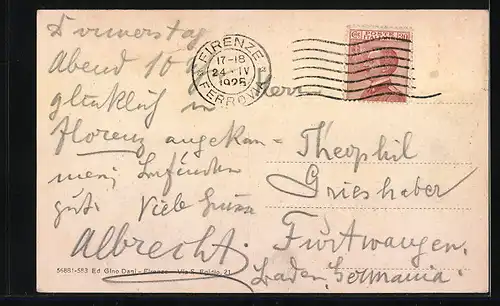 Donnerstag
Abend 10
glücklich in
Florenz angekom
men; befinden
gut. Viele Grüsse
Albrecht.
FIRENZE
17-18
24·IV
1925
FERROVIA
Herrn
Theophil
Grieshaber
Furtwangen.
Baden, Germania.
56881-583 Ed. Gino Dani - Firenze - Via S. Egidio, 21